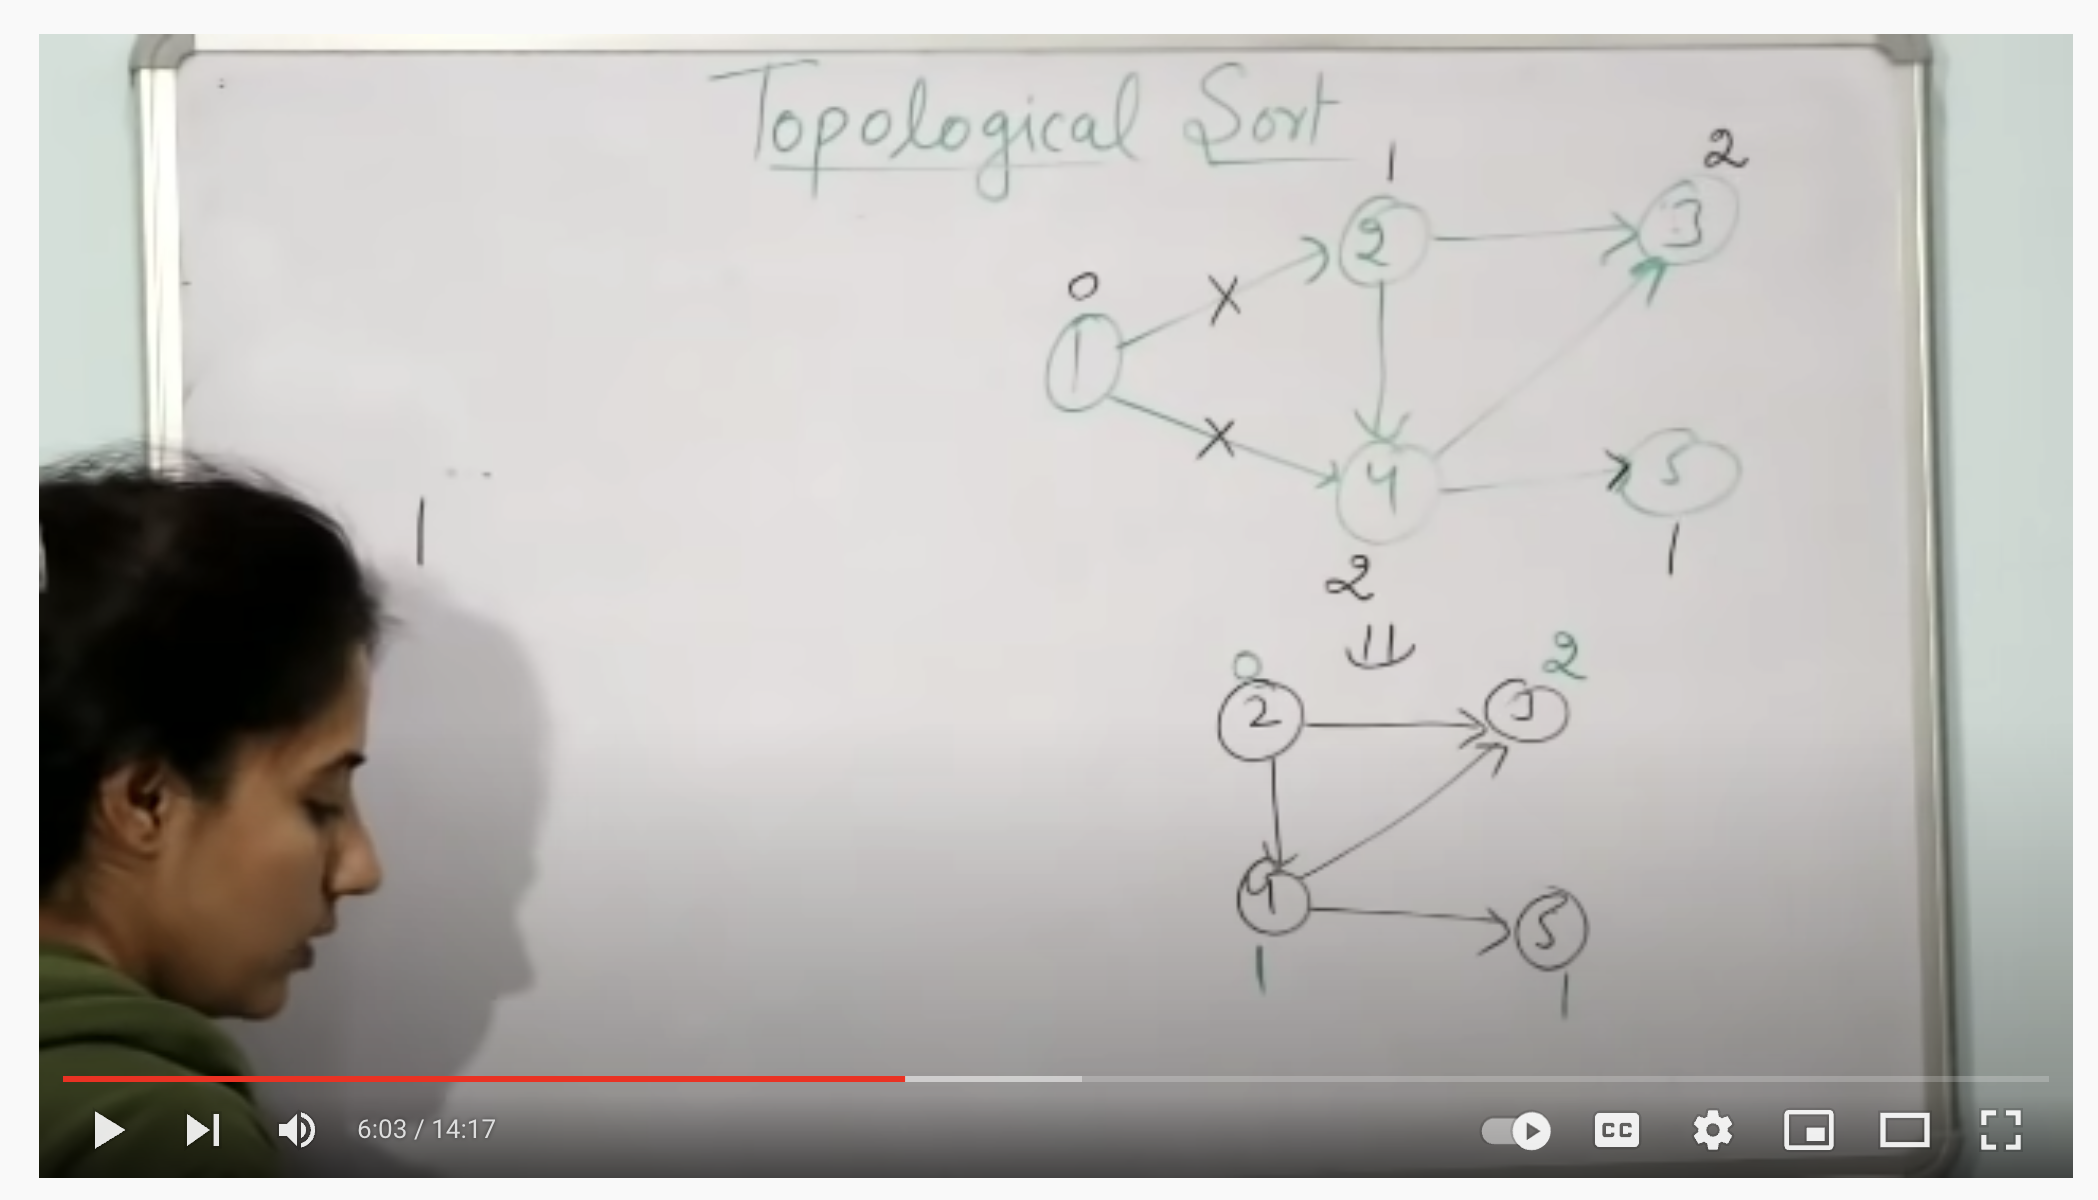 Topological Sort
1
2
0
2
3
1
X
X
4
5
1
2
1
0
2
2
3
4
5
1
1
6:03 / 14:17
CC